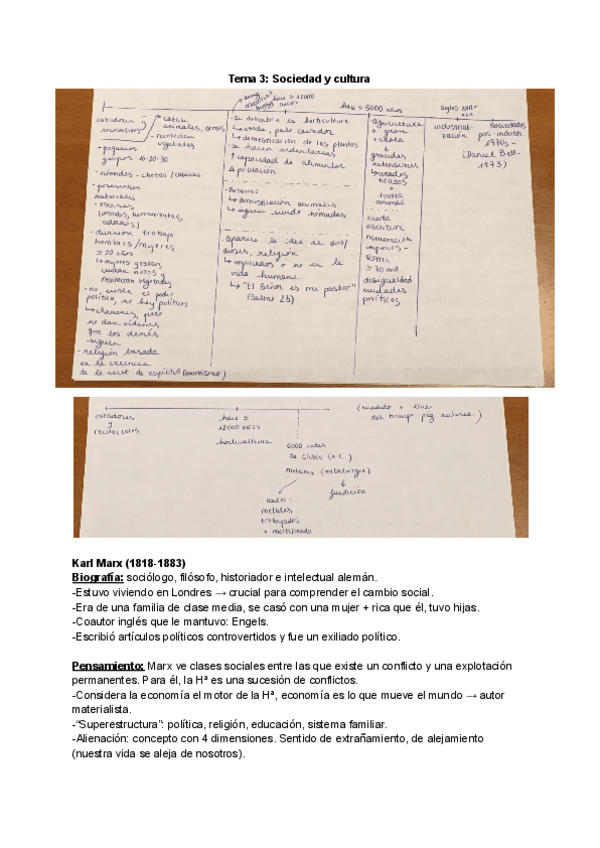 Tema 3: Sociedad y cultura
hace ≃ 12000
años
hace ≃ 5000 años
siglos XVIII -
XIX
cazadores
y
recolectores
animales,
- recolectan
vegetales
- pequeños
grupos 10-20-30
- posesiones
materiales
- escasas
herramientas,
- división trabajo
hombres/mujeres
↳ mujeres gestan,
cuidan niños y
recolectan vegetales
- no existe el poder
político, no hay políticos
↳ chamanes, pero
no dan órdenes
que los demás
siguen
- religión basada
en la creencia
de la exist. de espíritus (animismo)
- Se descubre la horticultura
↳ azada, palo cavador
↳ domesticación de las plantas
se hacen sedentarios
↑ capacidad de alimentar
Δ población
- Pastoreo:
↳ domesticación animales
↳ siguen siendo nómadas
- aparece la idea de dios/
dioses, religión
↳ implicados o no en la
vida humana
↳ "El Señor es mi pastor"
(Salmo 23)
agricultura
↓
grandes
extensiones
↳ arados
+
fuerza
animal
escritura
numeración
imperios -
Roma
desigualdad
ciudades
políticos
industriali-
zación
sociedades
pos-indust.
1970s -
(Daniel Bell -
1973)
cazadores
y
recolectores
hace ≃
12000 años
horticultura
6000 antes
de Cristo (a.C.)
metales (metalurgia)
↓
fundición
metales
trabajados
a martillazo
Karl Marx (1818-1883)
Biografía: sociólogo, filósofo, historiador e intelectual alemán.
-Estuvo viviendo en Londres → crucial para comprender el cambio social.
-Era de una familia de clase media, se casó con una mujer + rica que él, tuvo hijas.
-Coautor inglés que le mantuvo: Engels.
-Escribió artículos políticos controvertidos y fue un exiliado político.
Pensamiento: Marx ve clases sociales entre las que existe un conflicto y una explotación
permanentes. Para él, la Hª es una sucesión de conflictos.
-Considera la economía el motor de la Hª, economía es lo que mueve el mundo → autor
materialista.
-“Superestructura”: política, religión, educación, sistema familiar.
-Alienación: concepto con 4 dimensiones. Sentido de extrañamiento, de alejamiento
(nuestra vida se aleja de nosotros).